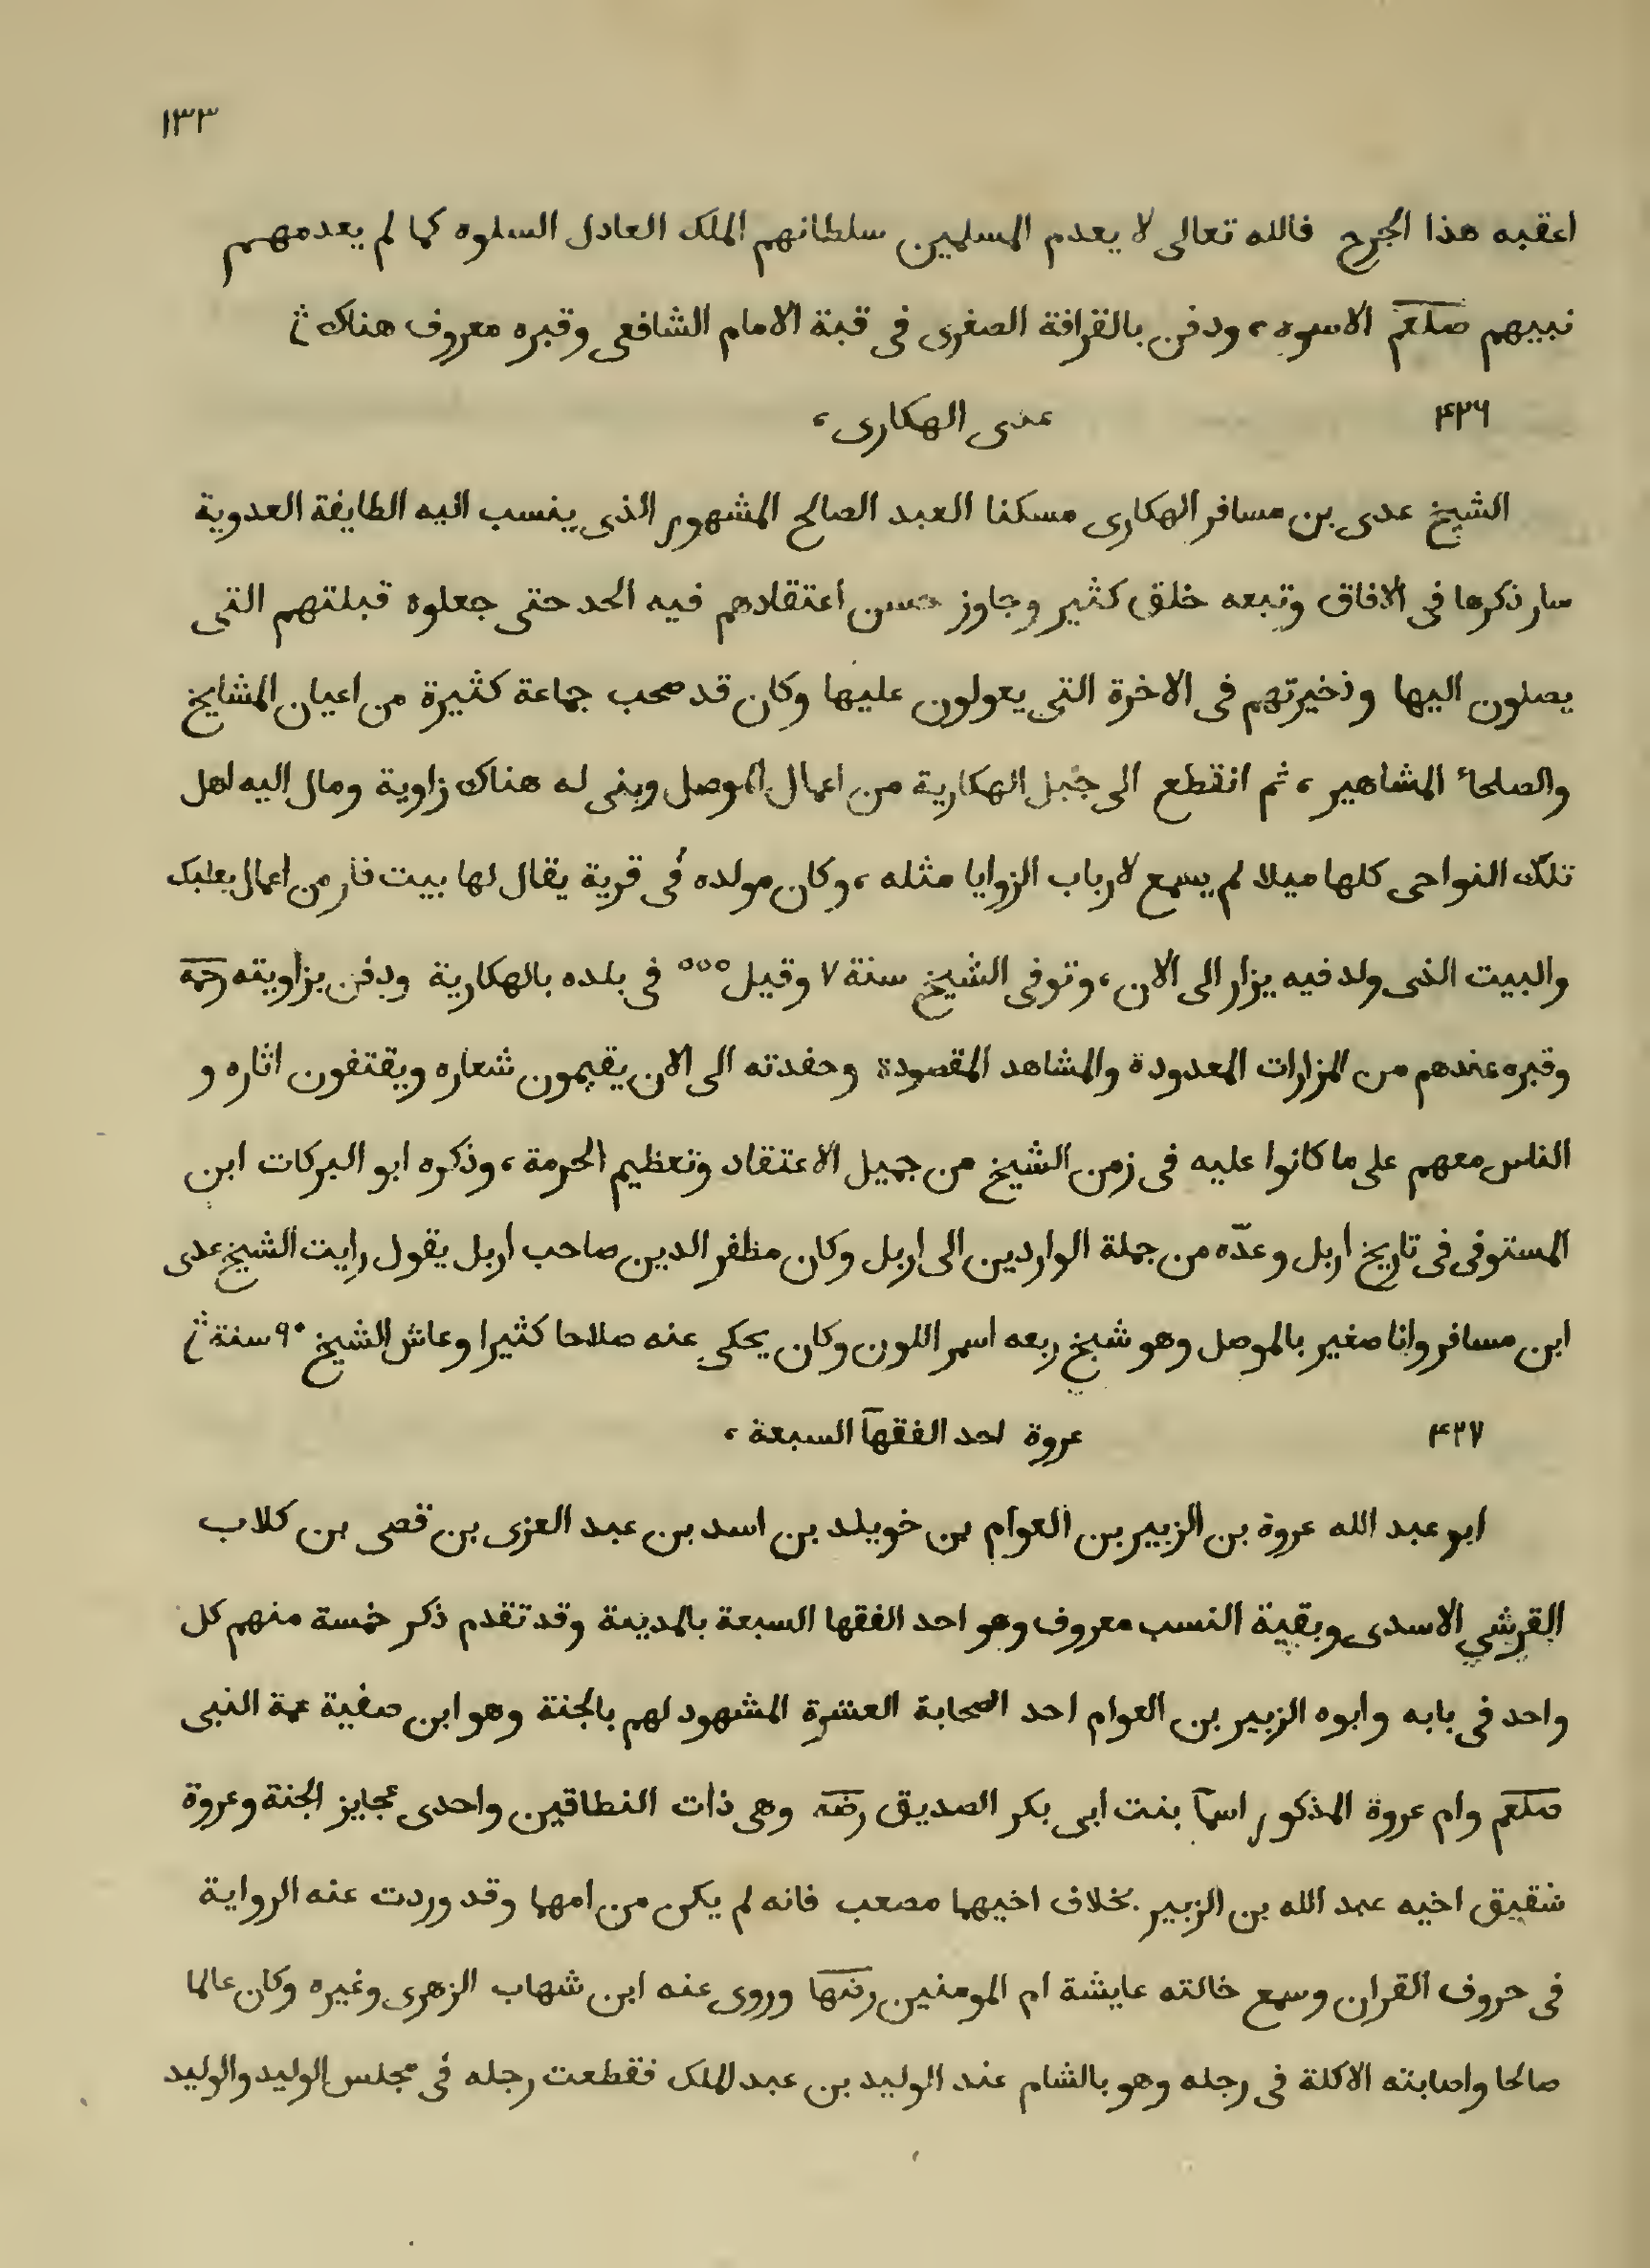 ١٣٣
اعقبه هذا الجرح فالله تعالى لا يعدم المسلمين سلطانهم الملك العادل السلوه كما لم يعدمهم
نبيهم صلعم الاسوه، ودفن بالقرافة الصغرى فى قبة الامام الشافعى وقبره معروف هناك
٤٢٦ عدى الهكارى،
الشيخ عدى بن مسافر الهكارى مسكنا العبد الصالح المشهور الذى ينسب اليه الطايفة العدوية
سار ذكرها فى الافاق وتبعه خلق كثير وجاوز حسن اعتقادهم فيه الحد حتى جعلوه قبلتهم التى
يصلون اليها وذخيرتهم فى الاخرة التى يعولون عليها وكان قد صحب جماعة كثيرة من اعيان المشايخ
والصلحاء المشاهير، ثم انقطع الى جبل الهكارية من اعمال الموصل وبنى له هناك زاوية ومال اليه اهل
تلك النواحى كلها ميلا لم يسمع لارباب الزوايا مثله، وكان مولده فى قرية يقال لها بيت فار من اعمال بعلبك
والبيت الذى ولد فيه يزار الى الان، وتوفى الشيخ سنة ٧ وقيل ٥٥٥ فى بلده بالهكارية ودفن بزاويته رحمه
وقبره عندهم من المزارات المعدودة والمشاهد المقصودة وحفدته الى الان يقيمون شعاره ويقتفون اثاره و
الناس معهم على ما كانوا عليه فى زمن الشيخ من جميل الاعتقاد وتعظيم الحرمة، وذكره ابو البركات ابن
المستوفى فى تاريخ اربل وعدّه من جملة الواردين الى اربل وكان مظفر الدين صاحب اربل يقول رايت الشيخ عدى
ابن مسافر وانا صغير بالموصل وهو شيخ ربعه اسمر اللون وكان يحكى عنه صلاحا كثيرا وعاش الشيخ ٩٠ سنة
٤٢٧ عروة احد الفقهآ السبعة،
ابو عبد الله عروة بن الزبير بن العوام بن خويلد بن اسد بن عبد العزى بن قصى بن كلاب
القرشي الاسدى وبقية النسب معروف وهو احد الفقها السبعة بالمدينة وقد تقدم ذكر خمسة منهم كل
واحد فى بابه وابوه الزبير بن العوام احد الصحابة العشرة المشهود لهم بالجنة وهو ابن صفية عمة النبى
صلعم وام عروة المذكور اسمآ بنت ابى بكر الصديق رضه وهى ذات النطاقين واحدى عجايز الجنة وعروة
شقيق اخيه عبد الله بن الزبير بخلاف اخيهما مصعب فانه لم يكن من امهما وقد وردت عنه الرواية
فى حروف القران وسمع خالته عايشة ام المومنين رضها وروى عنه ابن شهاب الزهرى وغيره وكان عالما
صالحا واصابته الاكلة فى رجله وهو بالشام عند الوليد بن عبد الملك فقطعت رجله فى مجلس الوليد والوليد